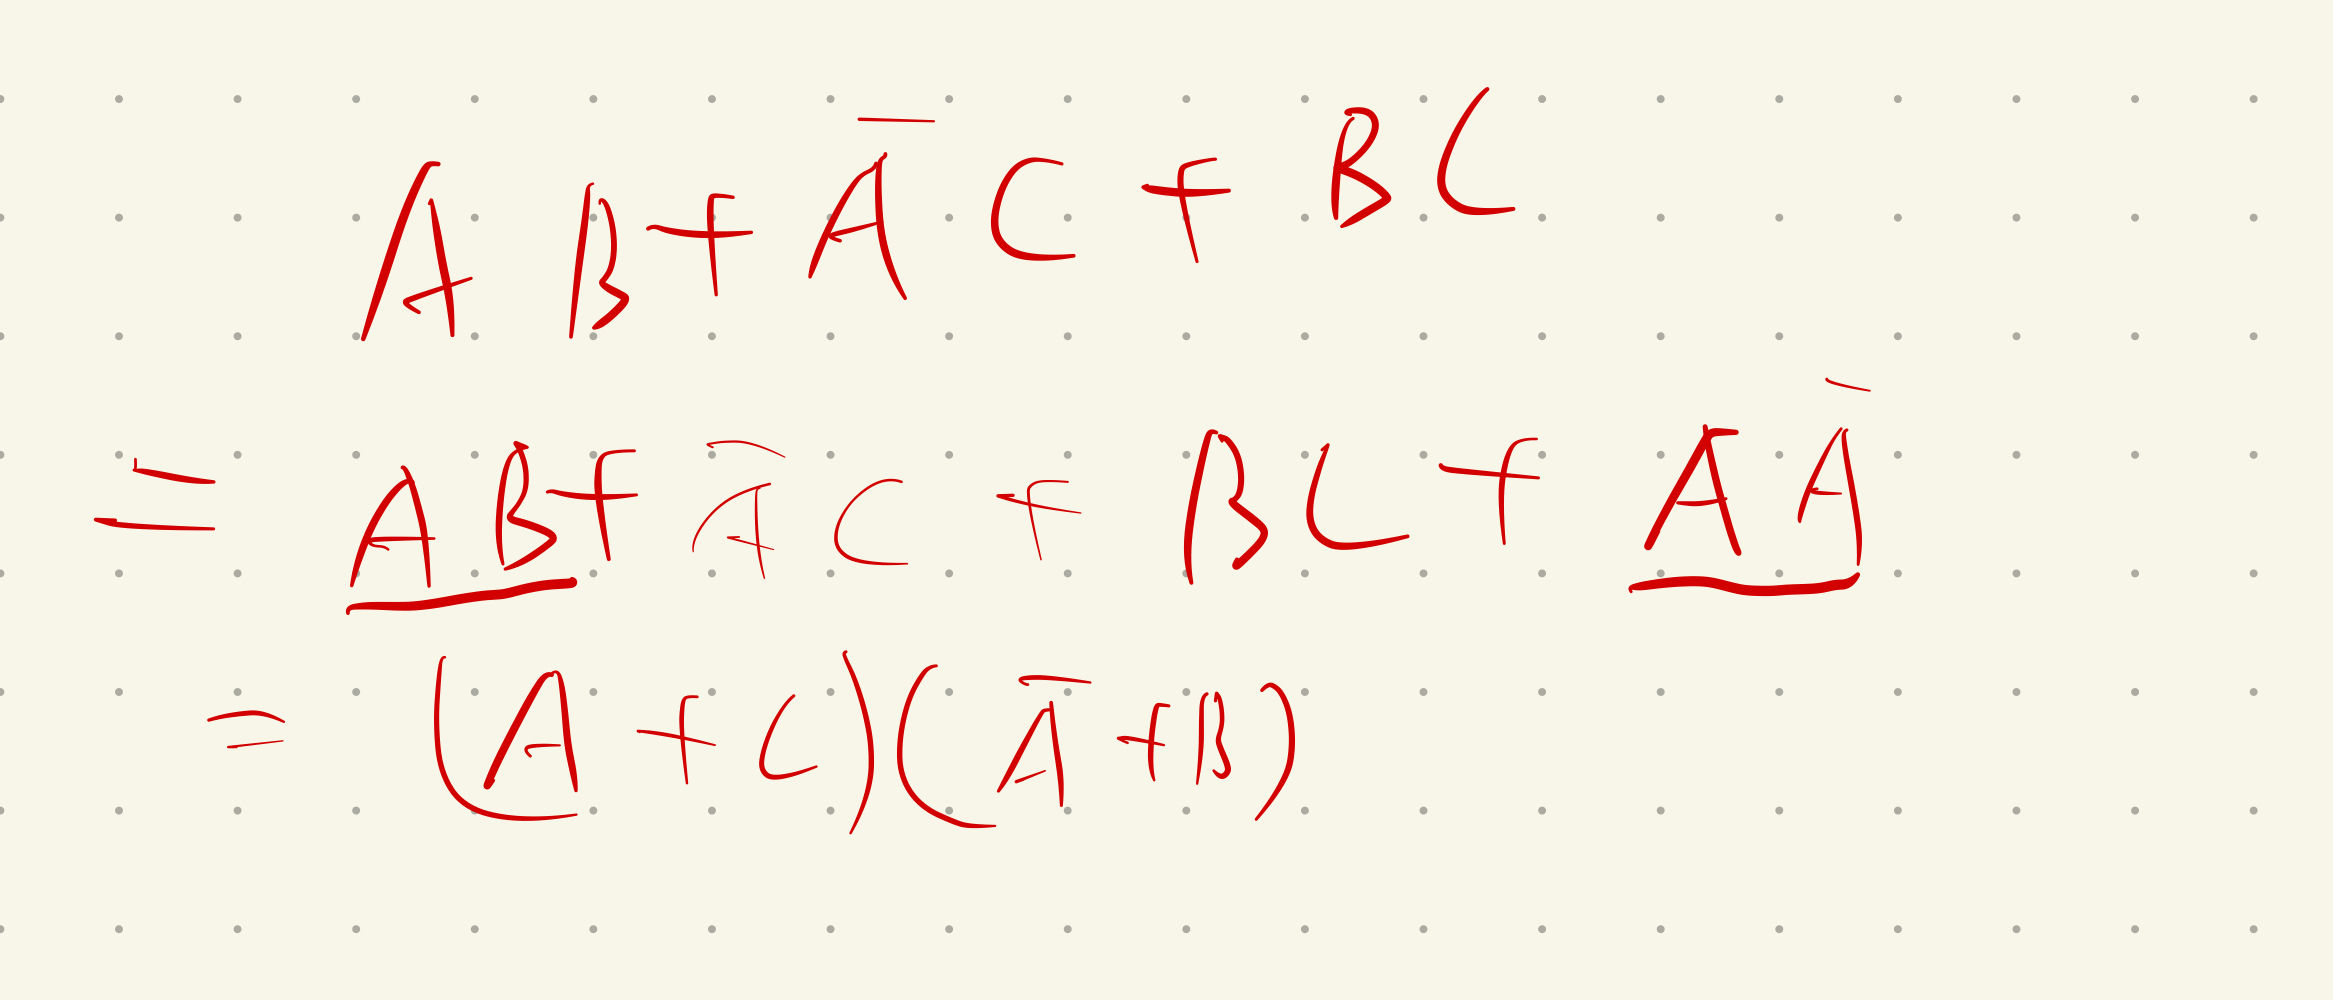 AB + A̅C + BC
= AB + A̅C + BC + AA̅
= (A + C)(A̅ + B)